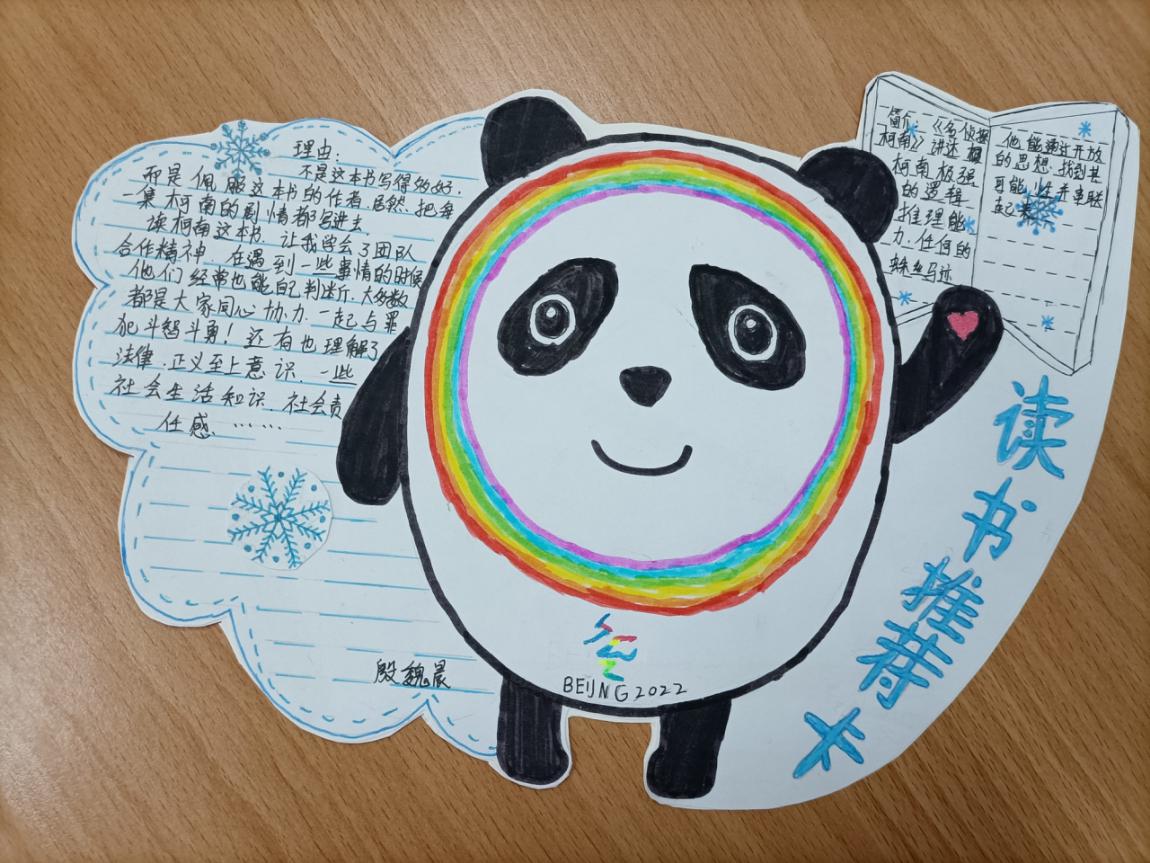 理由:
不是这本书写得多好,
而是佩服这本书的作者居然把每
集柯南的剧情都写进去.
读柯南这本书.让我学会了团队
合作精神.在遇到一些事情的时候
他们经常也能自己判断.大多数
都是大家同心协力.一起与罪
犯斗智斗勇!还有也理解了
法律.正义至上意识.一些
社会生活知识.社会责
任感.……
殷魏晨
BEIJNG 2022
简介:《名侦探
柯南》讲述
柯南极强
的逻辑
推理能
力.任何的
蛛丝马迹
他能通过开放
的思想.找到其
可能性并串联
起来
读书推荐卡